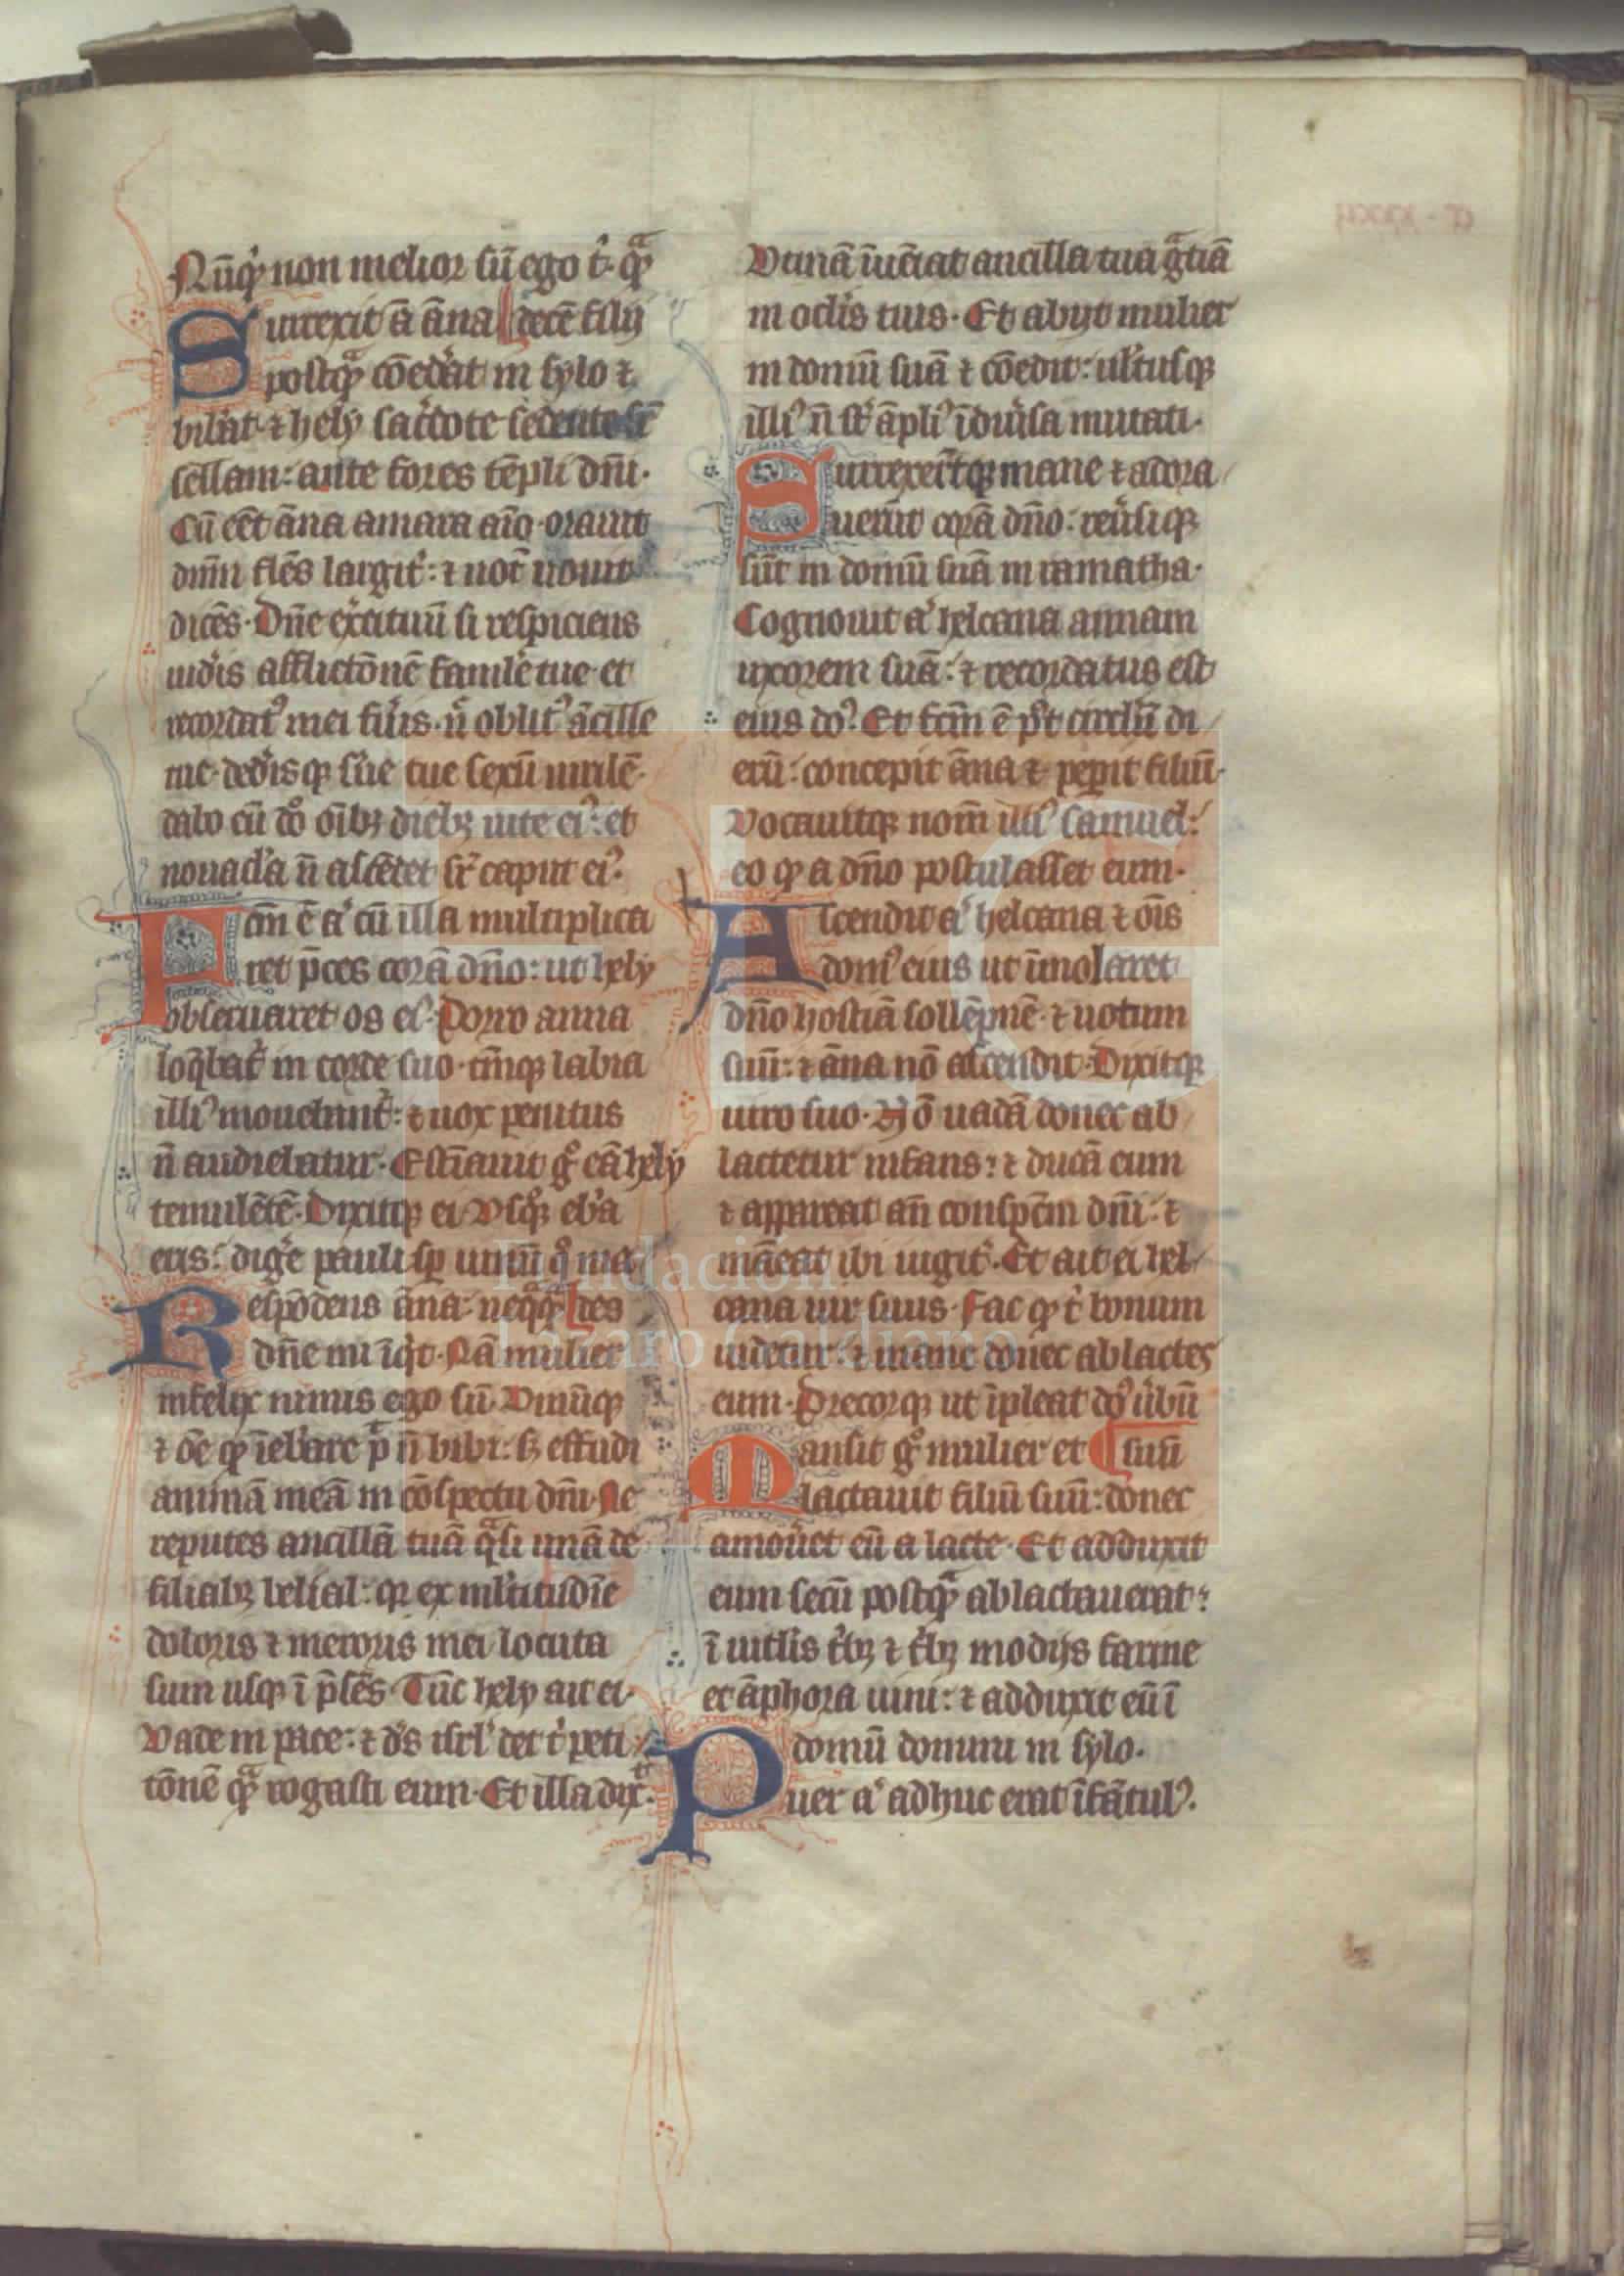 Nūqͥd non melior sū ego tͥ· qᷓ
Surrexit ā āna decē filij
postqᷓ cōed'at in sylo ⁊
bib'at· ⁊ hely sac'dote sedente sr̄
sellam: ante fores tēpli dn̄i·
Cū eēt āna amara aīo· orauit
dnm̄ flēs largit': ⁊ uot̄ uouit
dicēs· Dn̄e ex'cituū si respiciens
uid'is afflictōnē famle tue· et
recordatꝰ mei fu'is· n̄ oblitꝰ ācille
tue· ded'isqꝫ s'ue tue sexū uirilē·
dabo eū dō oībꝫ diebꝫ uite eiꝰ: et
nouacl'a n̄ ascēdet sr̄ caput eiꝰ·
Fcm̄ ē aͥ cū illa multiplica
ret p̄ces corā dn̄o: ut hely
obseruaret os eiꝰ· Porro anna
loq̄bat' in corde suo· tm̄qꝫ labia
illiꝰ mouebant': ⁊ uox penitus
n̄ audiebatur· Estīauit gͦ eā hely
temulētē· Dixitqꝫ ei Vsqͦꝫ eb'a
eris: dig'e pauli sꝑ uinū qͦ ma
Respōdens āna: neqᷓqᷓ des
dn̄e mi īqͥt· Nā mulier
infelix nimis ego sū· Vinūqꝫ
⁊ oē qͩ īeb'are pͭ n̄ bibi: sꝫ effudi
animā meā in cōspectu dn̄i· Ne
reputes ancillā tuā qͣsi unā de
filiabꝫ belial: qꝫ ex ml'titudīe
doloris ⁊ meroris mei locuta
sum usqꝫ ī p̄sēs· Tūc hely ait ei·
Vade in pace: ⁊ d's isrl' det tͥ peti
tōnē qᷓ rogasti eum· Et illa dix·
Vtinā īueīat ancilla tua gͣtiā
in ocl'is tuis· Et abijt mulier
in domū suā ⁊ cōedit: ul'tusqꝫ
illiꝰ n̄ st̄ āpliꝰ īdiu'sa mutati·
Surrexer̄tqꝫ mane ⁊ adora
uer̄ūt corā dn̄o: reu'siqꝫ
sūt in domū suā in ramatha·
Cognouit aͥ helcana annam
uxorem suā: ⁊ recordatus est
eius dōꝰ Et fcm̄ ē pꝰt circl'ū di
erū: concepit āna ⁊ peꝑit filiū·
Vocauitqꝫ nom̄ illiꝰ Samuel:
eo qͩ a dn̄o postulasset eum·
Ascendit aͥ helcana ⁊ oīs
domꝰ eius ut īmolaret
dn̄o hostiā sollēpnē· ⁊ uotum
suū: ⁊ āna nō ascendit· Dixitqꝫ
uiro suo· Nō uadā donec ab
lactetur infans: ⁊ ducā eum
⁊ appareat an̄ conspc̄m dn̄i: ⁊
māeat ibi iugit'· Et ait ei hel
cana uir suus· Fac qͩ tͥ bonum
uidetur: ⁊ mane donec ablactes
eum· Precorqꝫ ut īpleat dō ūbū
Mansit gͦ mulier et suū
lactauit filiū suū: donec
amou'et eū a lacte· Et adduxit
eum secū postqᷓ ablactauerat:
ī uitl'is tͥbꝫ ⁊ tͥbꝫ modijs farine
et āphora uini: ⁊ adduxit eū ī
domū domini in sylo·
Puer aͥ adhuc erat īfātulꝰ·
Fundación
Lázaro Galdiano